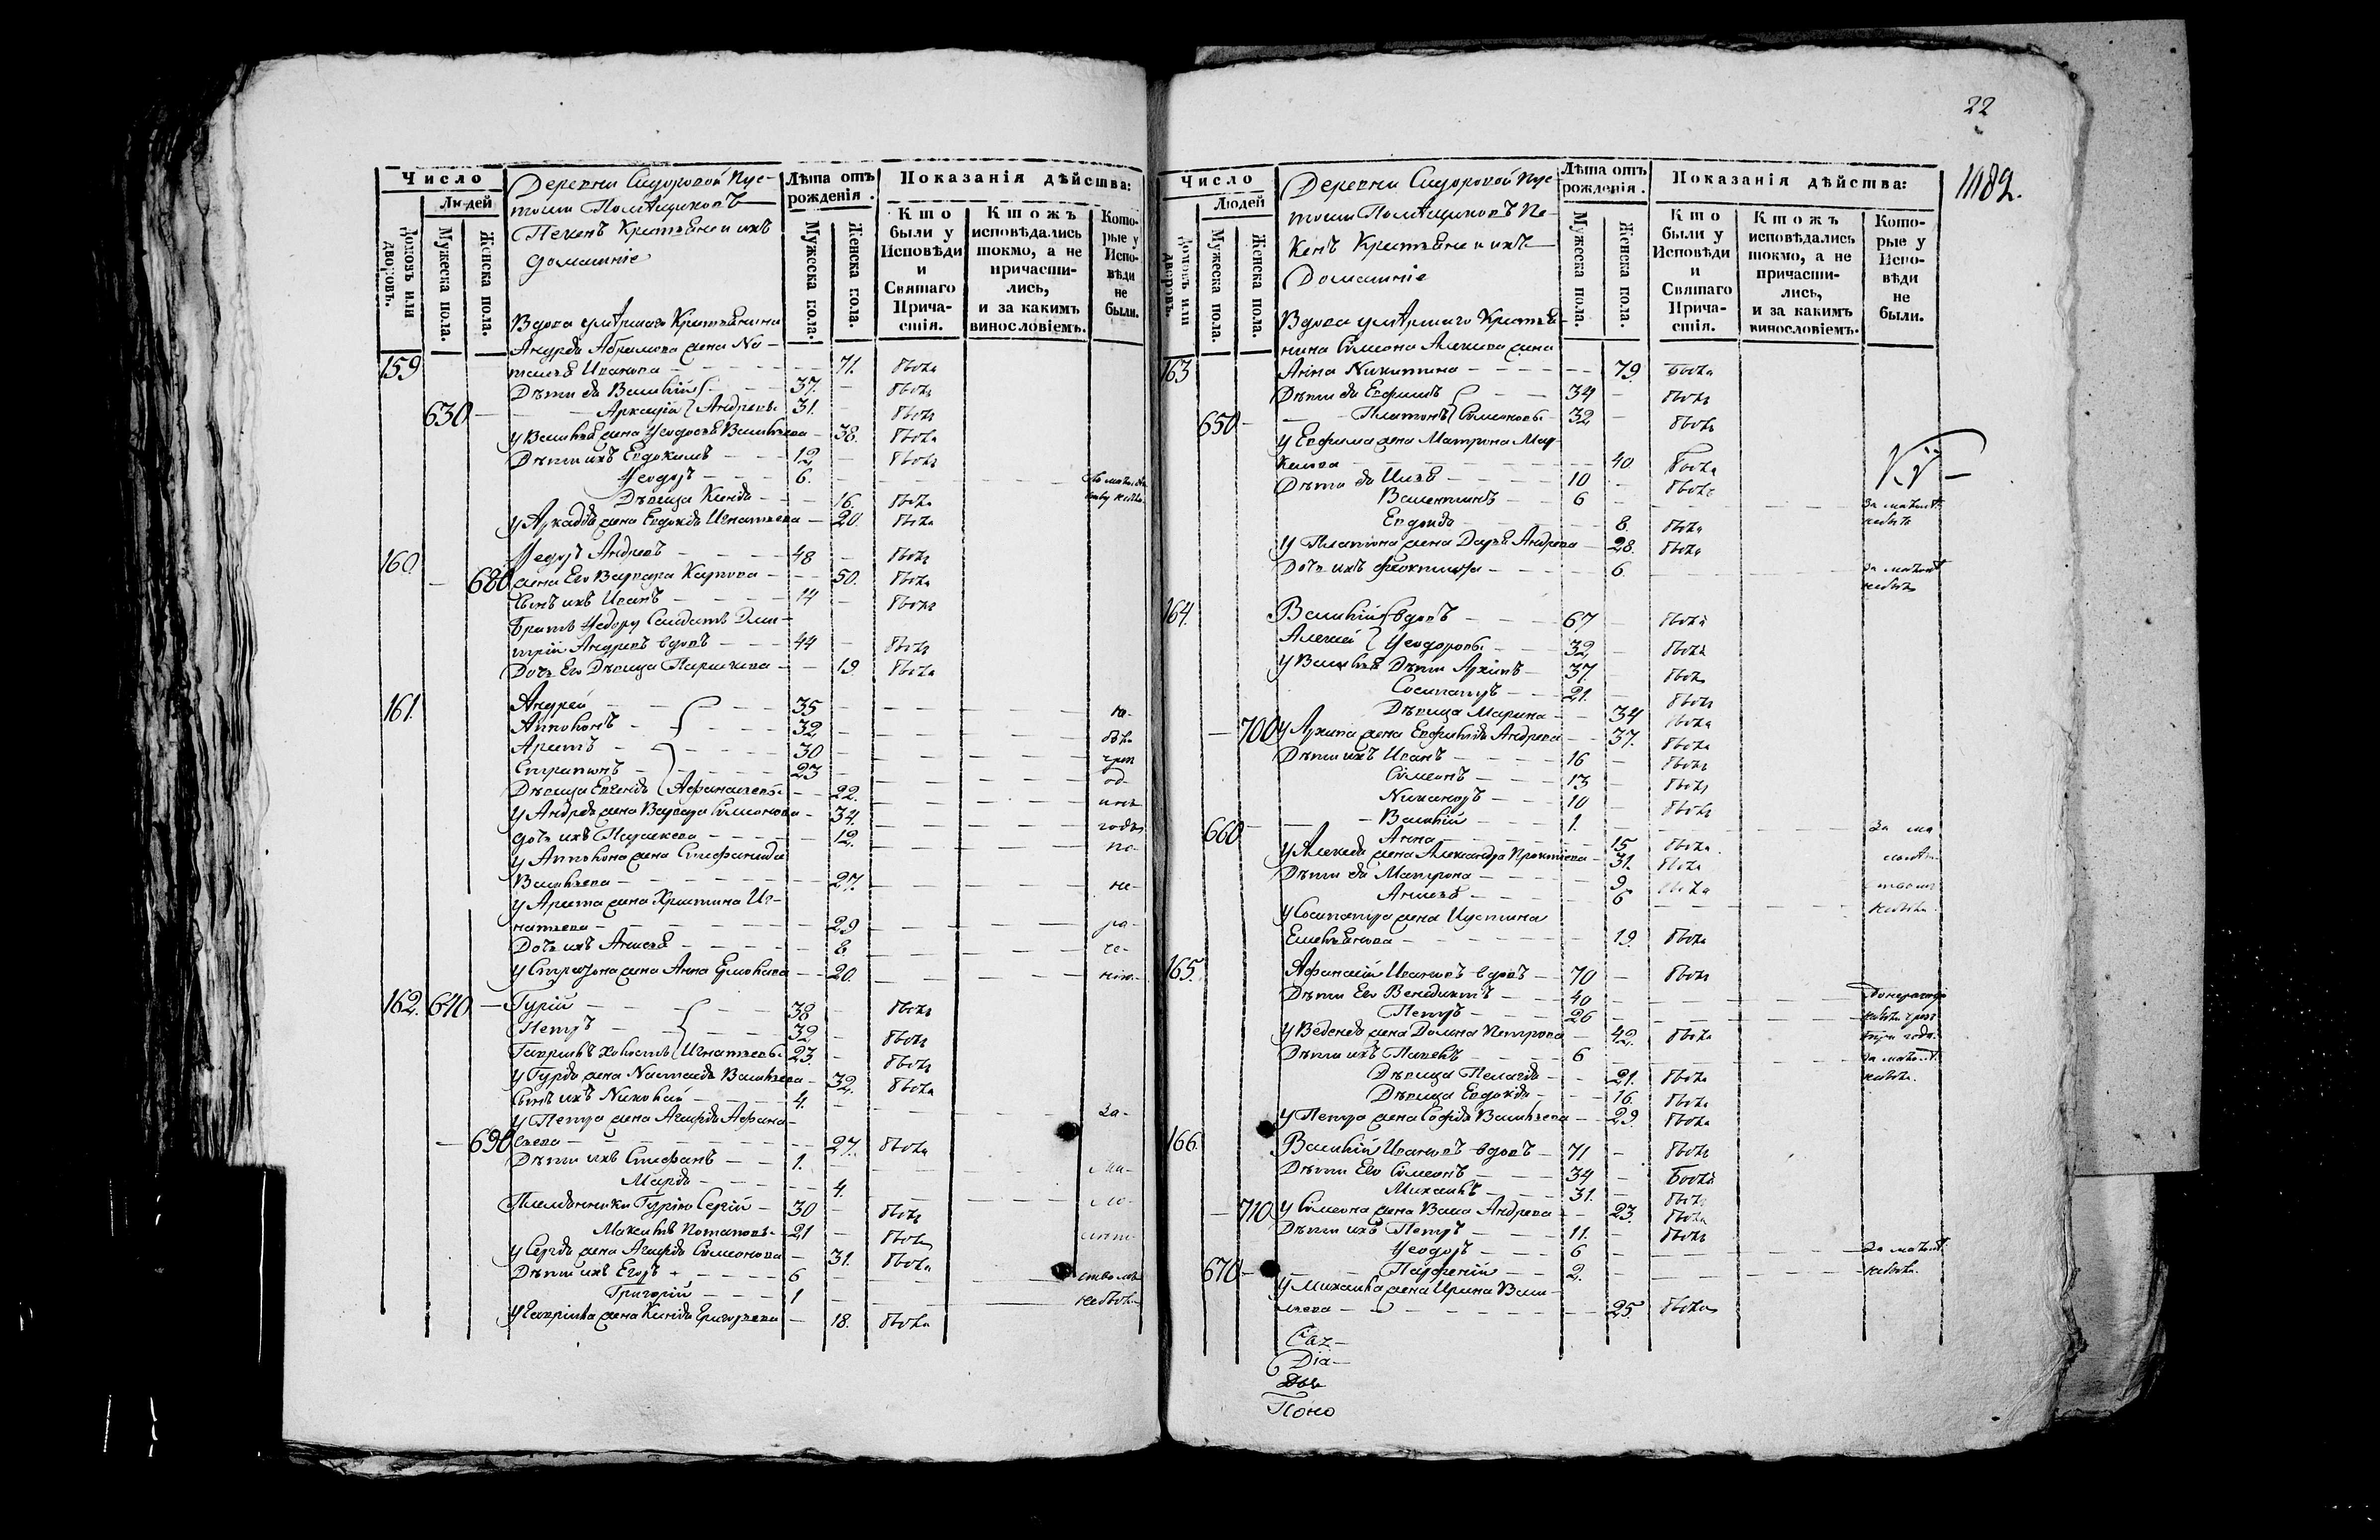 Число
Людей
Домовъ или дворовъ.
Мужеска пола.
Женска пола.
Деревни Сидоровой Пус-
тоши Помѣщиковъ
Крестьяне и ихъ
домашніе
Лѣта отъ рожденія.
Мужеска пола.
Женска пола.
Показанія дѣйства:
Кто были у Исповѣди и Святаго Причастія.
Ктожъ исповѣдались токмо, а не причастились, и за какимъ винословіемъ.
Которые у Исповѣди не были.
Вдова умѣршаго Крестьянина
Андрея Абрамова жена На-
159 талья Иванова — 71. была
Дѣти ея Василій 37. былъ
630 — Аркадій Андреевы 31. былъ
у Василья жена Ѳеодосья Васильева — 38. была
Дѣти ихъ Евдокимъ — 12 — былъ
Ѳеодоръ — 6.
Дѣвица Ксенія — 16. была
у Аркадія жена Евдокія Игнатьева — 20. была
160 Ѳедоръ Андреевъ — 48 — былъ
680 жена Его Варвара Карпова — 50. была
Сынъ ихъ Иванъ — 14 — былъ
Братъ Ѳедору Солдатъ Дми-
трій Андреевъ вдовъ — 44 — былъ
Дочь Его Дѣвица Параскева — 19 была
161. Андрей — 35
Апполонъ — 32
Аристъ — 30
Стратонъ — 23
Дѣвица Евгенія Афанасьевы — 22.
у Андрея жена Варвара Симонова — 34.
дочь ихъ Параскева — 12.
у Апполона жена Стефанида
Васильева — 27.
у Ариста жена Христина Иг-
натьева — 29
Дочь ихъ Анисья — 8.
у Стратона жена Анна Ермолаева — 20.
162. 640 — Гурій — 38 — былъ
Петръ — 32 — былъ
Гавріилъ холостъ Игнатьевы 23 — былъ
у Гурія жена Настасья Васильева — 32. была
Сынъ ихъ Николай — 4. за-
у Петра жена Агафія Афана-
690 сьева — 27. была
Дѣти ихъ Стефанъ — 1. ма-
Марѳа — 4. ло-
Племянники Гурію Сергій — 30 — былъ
Максимъ Потаповы — 21 — былъ
у Сергія жена Агафія Симонова — 31. была
Дѣти ихъ Егоръ — 6
Григорій — 1 не были
у Гавріила жена Ксенія Григорьева — 18. была
22
1182.
Число
Людей
Домовъ или дворовъ.
Мужеска пола.
Женска пола.
Деревни Сидоровой Пус-
тоши Помѣщиковъ
Крестьяне и ихъ
Домашніе
Лѣта отъ рожденія.
Мужеска пола.
Женска пола.
Показанія дѣйства:
Кто были у Исповѣди и Святаго Причастія.
Ктожъ исповѣдались токмо, а не причастились, и за какимъ винословіемъ.
Которые у Исповѣди не были.
Вдова умѣршаго Крестья-
нина Симеона Алексѣева жена
163 Анна Никитина — 79. была
Дѣти ея Евфимъ — 34 — былъ
650 — Платонъ Симеоновы — 32 — былъ
у Евфима жена Матрона Мар-
келова — 40 была
Дѣти ея Илья — 10 — былъ
Валентинъ — 6 за малолѣт.
Евдокія — 8. была
у Платона жена Дарья Андреева — 28. была
Дочь ихъ Феоктиста — 6. за малолѣт.
164. Василій вдовъ — 67 — былъ
Алексей Ѳеодоровы — 32 — былъ
у Василья Дѣти Архипъ — 37. — былъ
Сосипатръ — 21. — былъ
Дѣвица Марина — 34 была
700 у Архипа жена Евфимія Андреева — 37. была
Дѣти ихъ Иванъ — 16 — былъ
Симеонъ — 13 — былъ
Никаноръ — 10 — былъ
660 — Василій — 1. за ма
Анна — 15 была
у Алексѣя жена Александра — 31. была
Дѣти ея Матрона — 9 была
Анисья — 6
у Сосипатра жена Иустина
Емельянова — 19. была
165. Афанасій Ивановъ вдовъ — 70 — былъ
Дѣти Его Венедиктъ — 40
Петръ — 26
у Веденея жена Домна Петрова — 42. была
Дѣти ихъ Павелъ — 6 за малолѣт.
Дѣвица Пелагія — 21. была
Дѣвица Евдокія — 16. была
у Петра жена Софія Васильева — 29. была
166 Василій Ивановъ вдовъ — 71 — былъ
Дѣти Его Симеонъ — 34 — былъ
Михаилъ — 31. былъ
710 у Симеона жена Васса Андреева — 23. была
Дѣти ихъ Петръ — 11. — былъ
Ѳеодоръ — 6 за малолѣт.
670 — Парфеній — 2.
у Михаила жена Ирина Васи-
льева — 25 была
Діа-
Поно